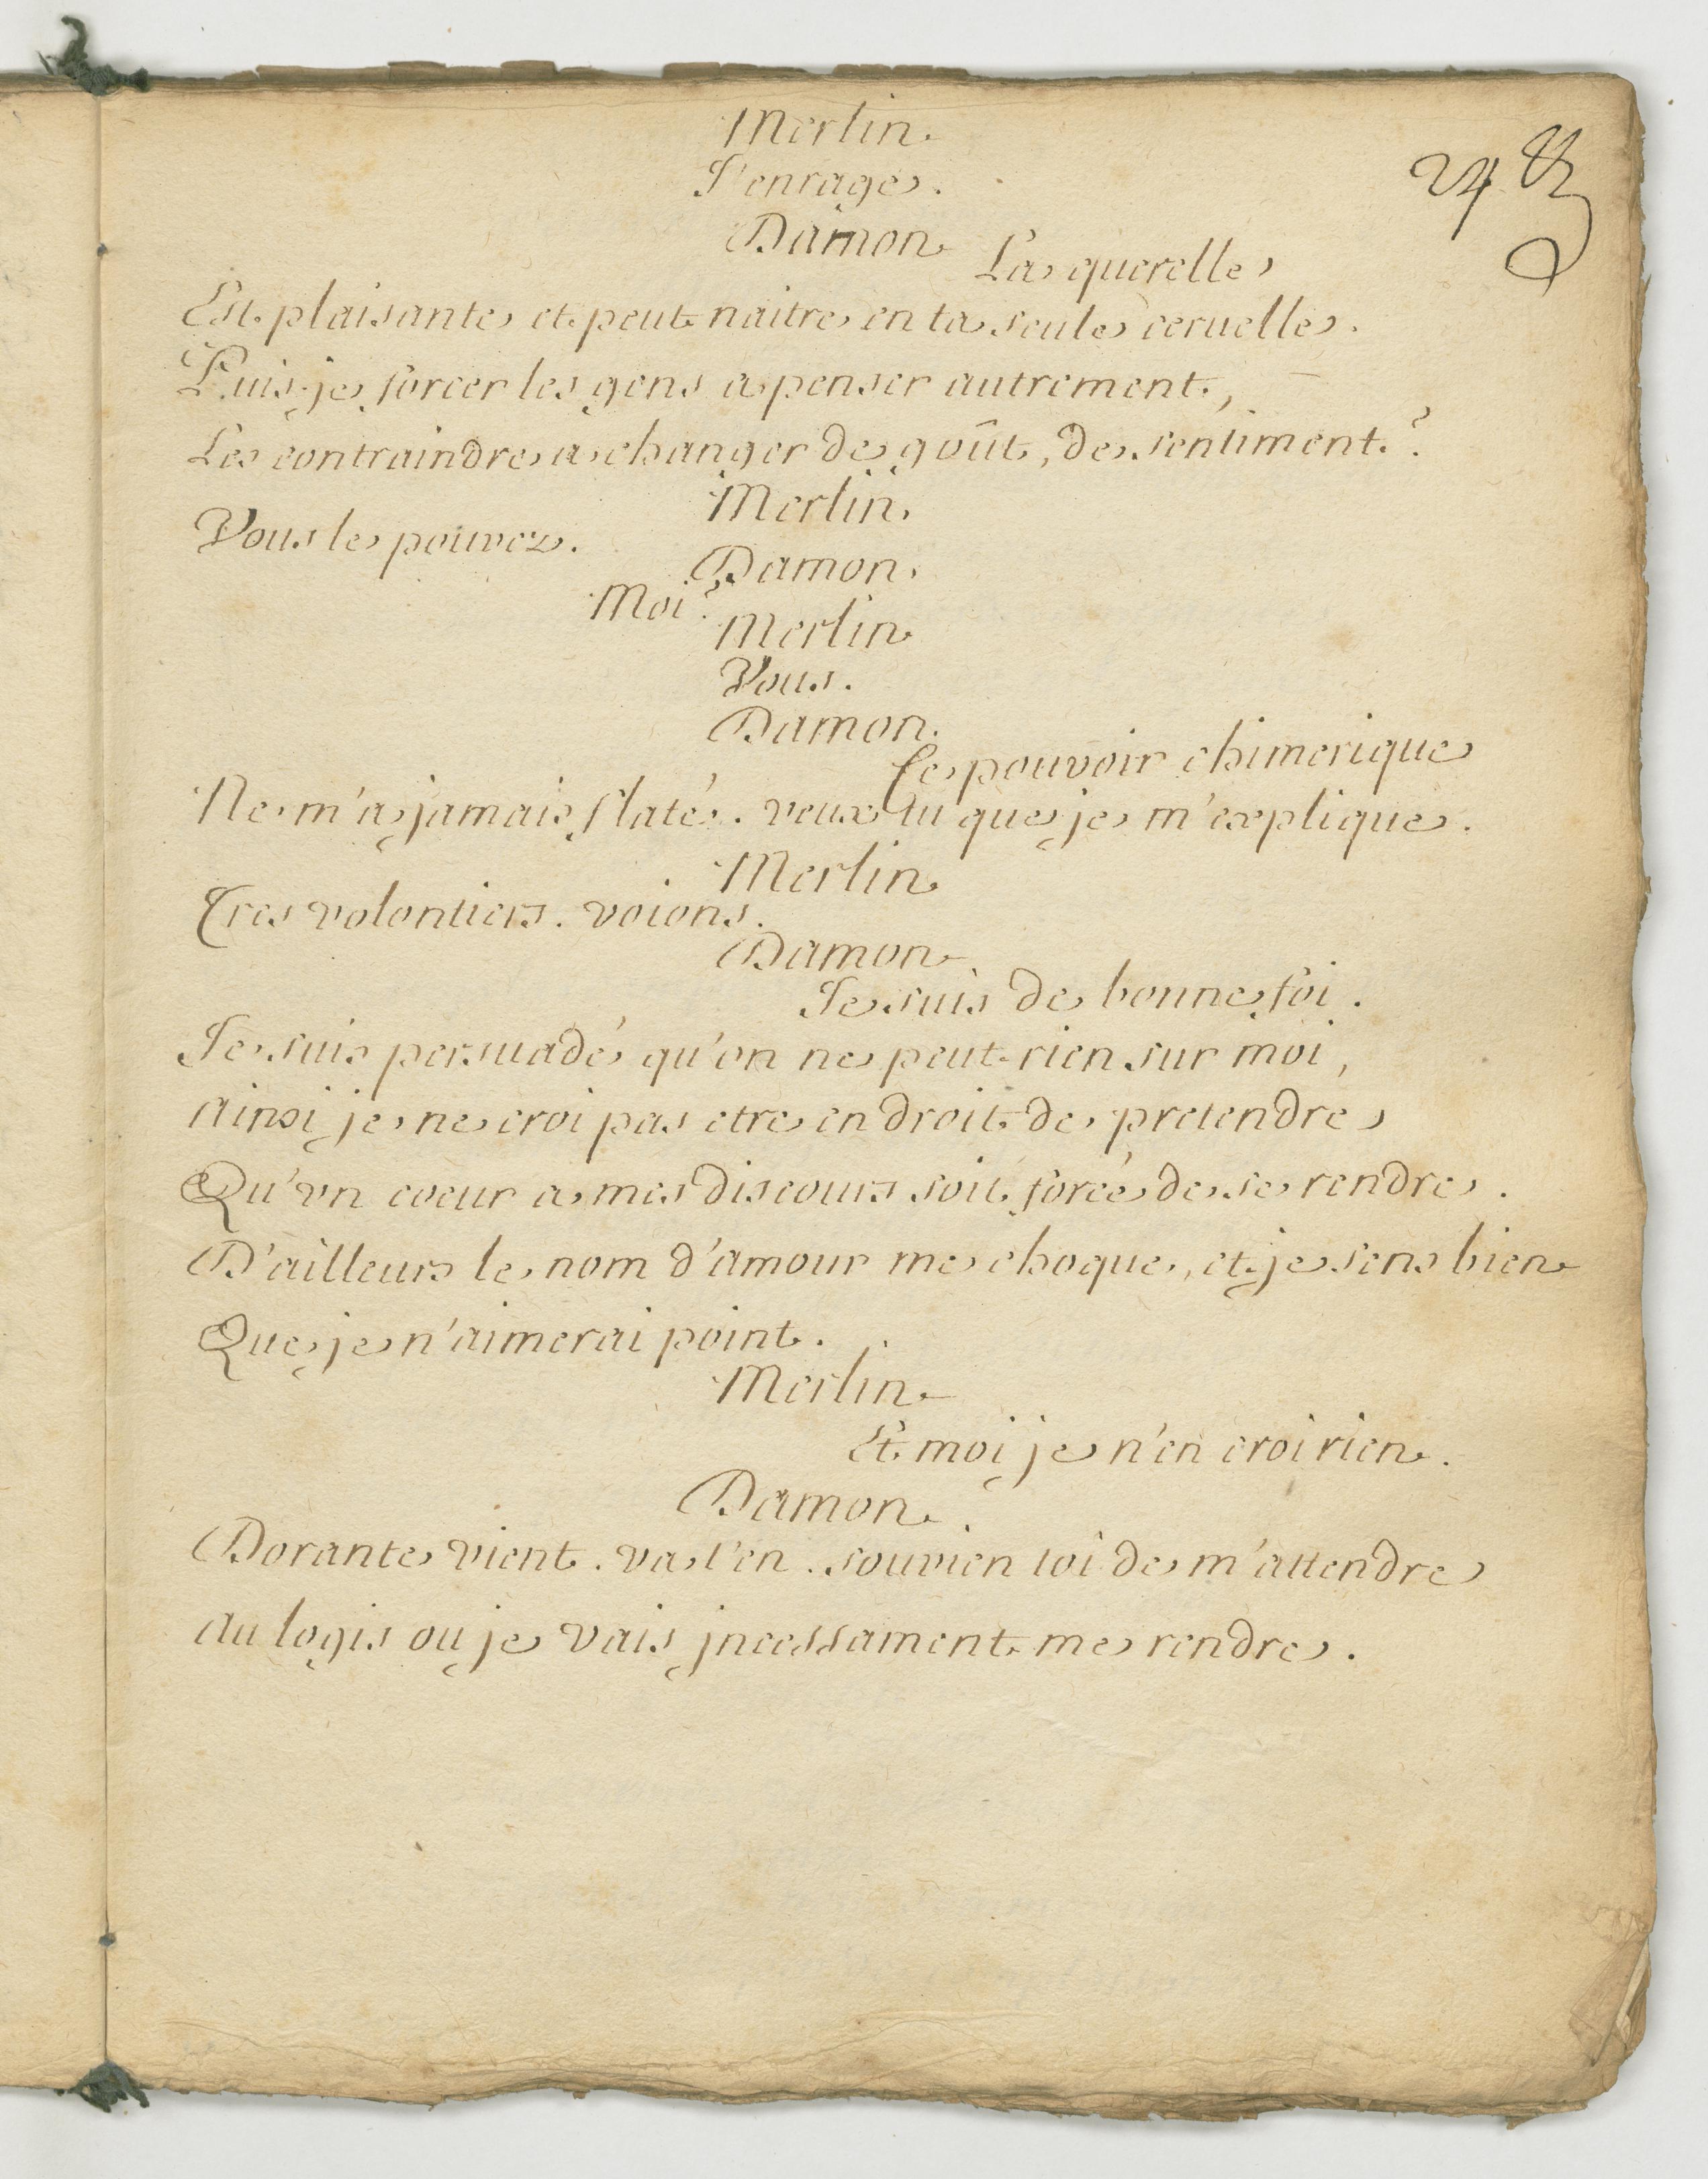 Merlin.
24
J'enrage.
Damon
La querelle
Est plaisante et peut naitre en ta seule ceruelle.
Puis-je forcer les gens a penser autrement,
Les contraindre a changer de goût, de sentiment?
Merlin.
Vous le pouvez.
Damon.
Moi?
Merlin
Vous.
Damon.
Ce pouvoir chimerique
Ne m'a jamais flaté. veux tu que je m'explique.
Merlin
Tres volontiers. voions.
Damon
Je suis de bonne foi.
Je suis persuadé qu'on ne peut rien sur moi,
ainsi je ne croi pas etre en droit de pretendre
Qu'vn coeur a mes discours soit forcé de se rendre.
D'ailleurs le nom d'amour me choque, et je sens bien
Que je n'aimerai point.
Merlin
Et moi je n'en croi rien.
Damon.
Dorante vient. va t'en. souvien toi de m'attendre
au logis ou je vais jncessament me rendre.